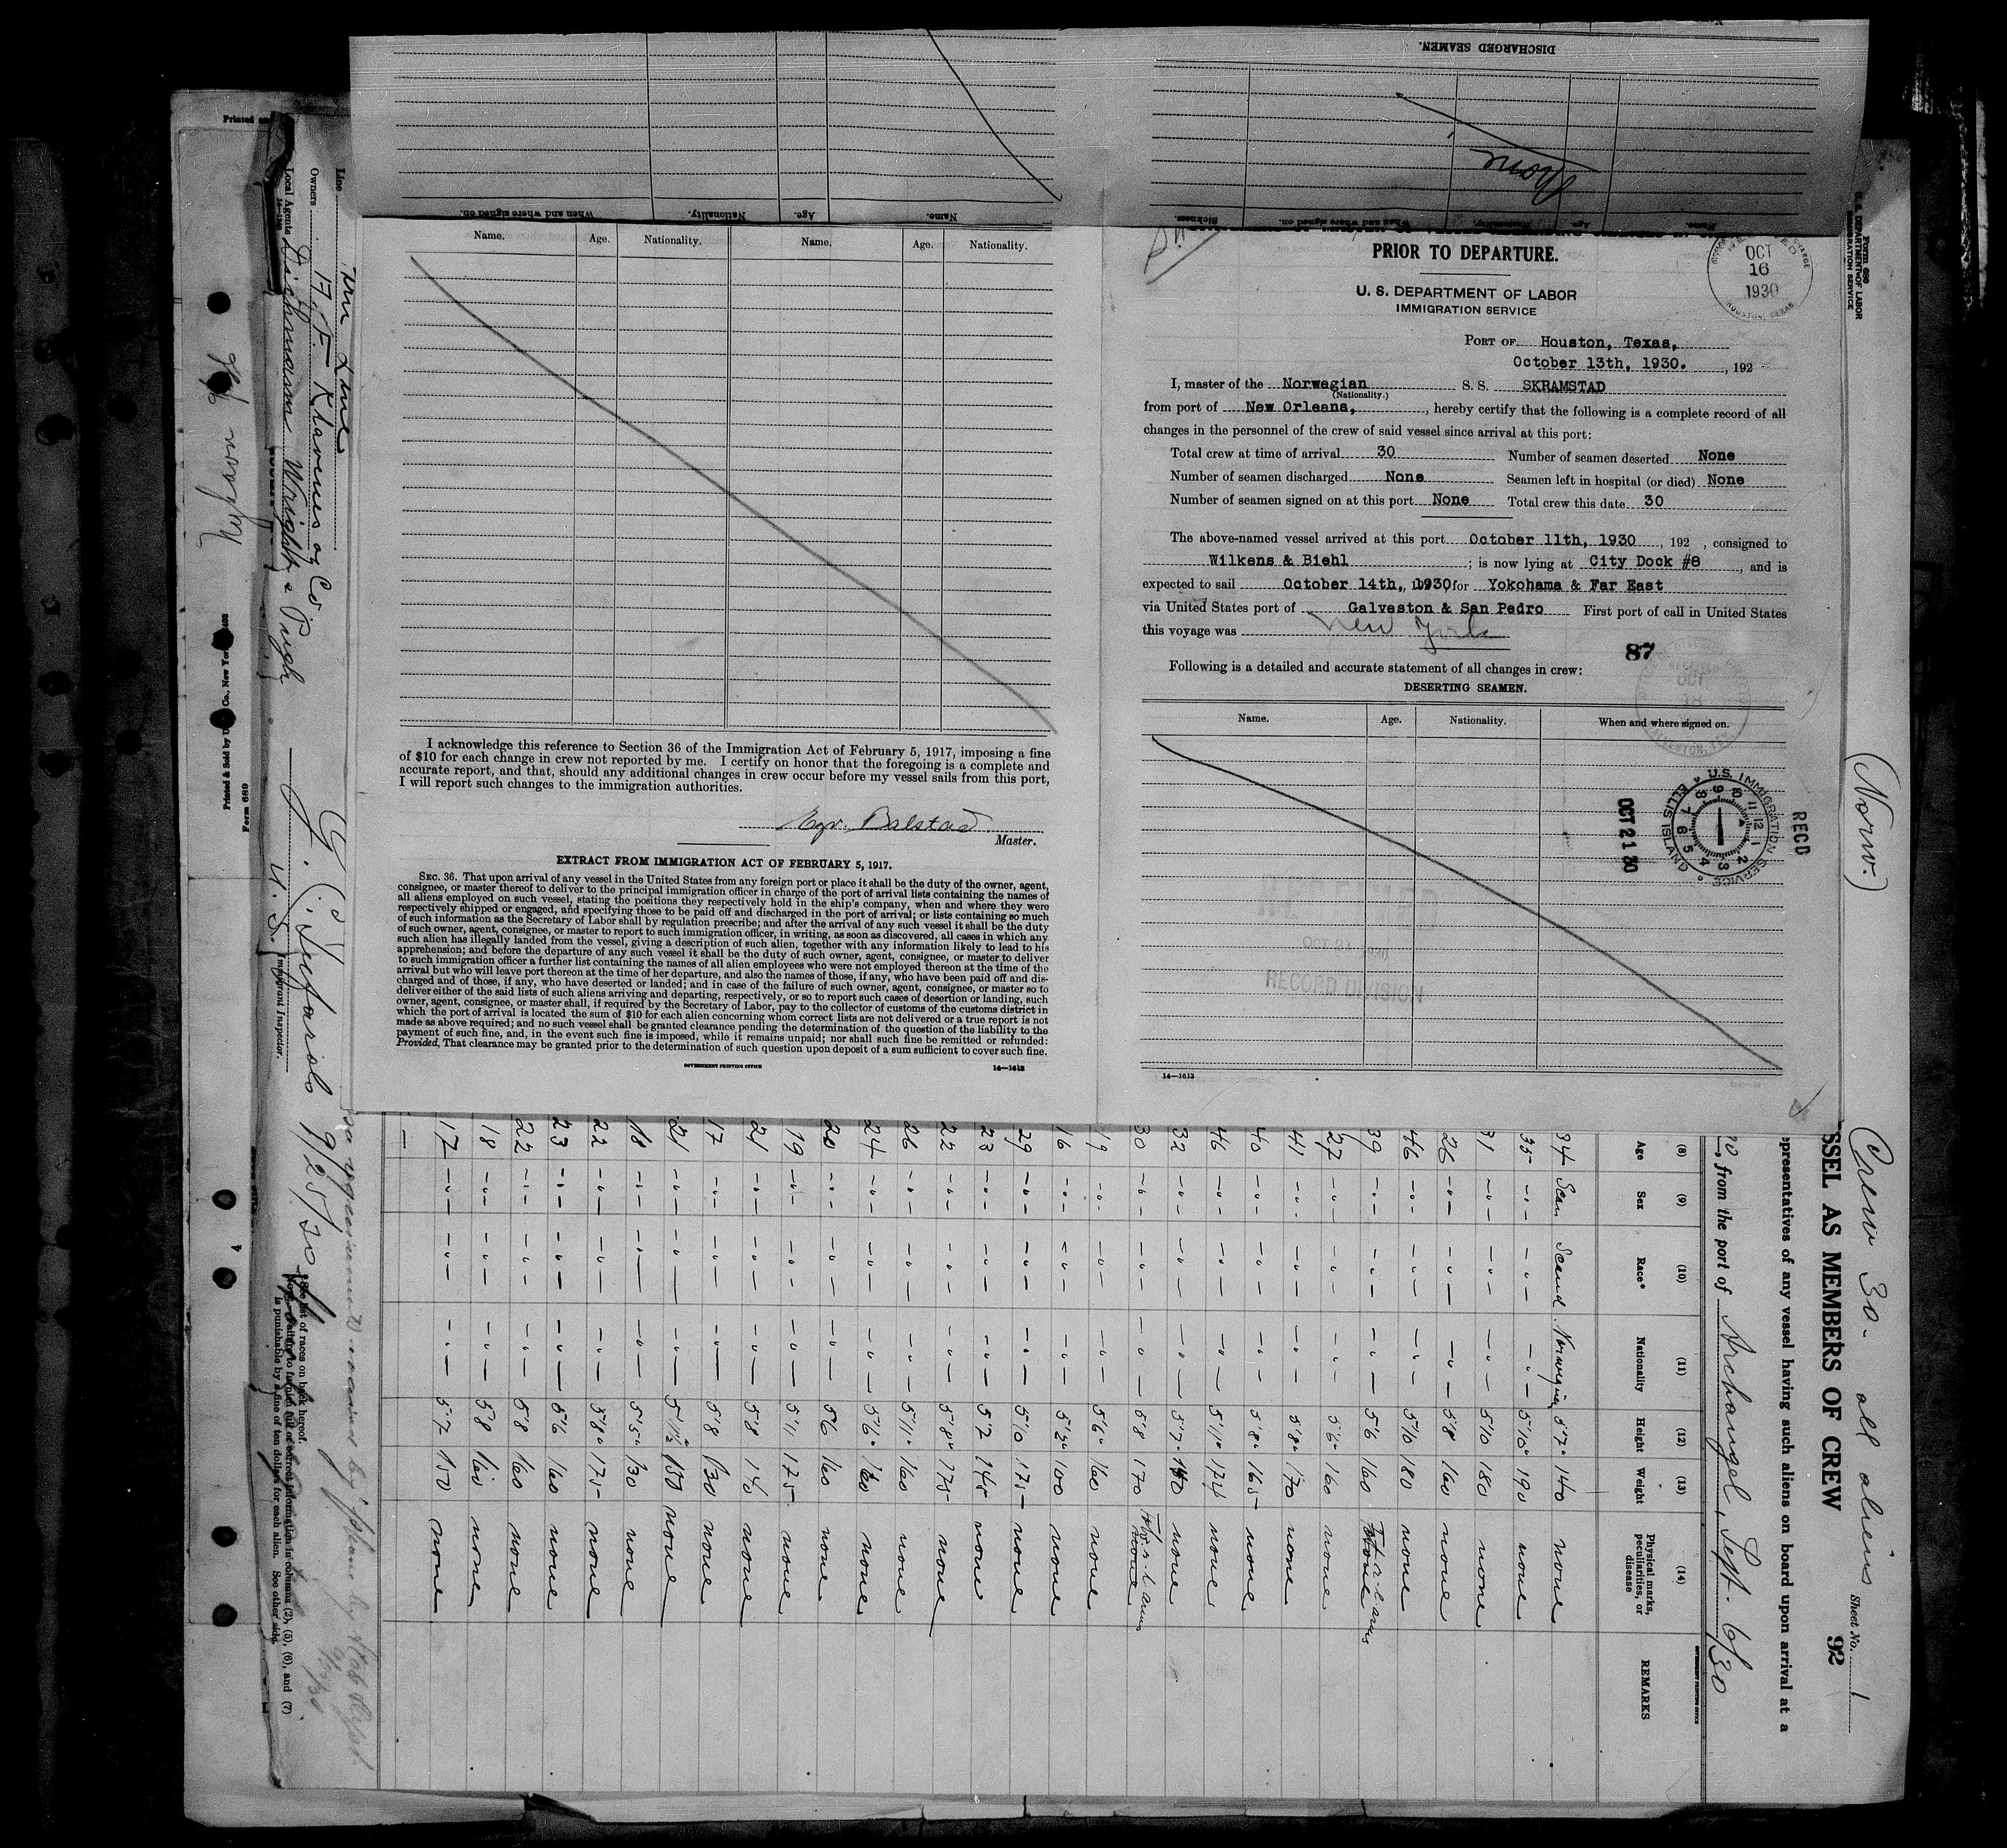 DISCHARGED SEAMEN.
None
Name. Age. Nationality. When and where signed on.
Name. Age. Nationality. When and where signed on. Sickness.
Name. Age. Nationality. Name. Age. Nationality.
I acknowledge this reference to Section 36 of the Immigration Act of February 5, 1917, imposing a fine
of $10 for each change in crew not reported by me. I certify on honor that the foregoing is a complete and
accurate report, and that, should any additional changes in crew occur before my vessel sails from this port,
I will report such changes to the immigration authorities.
Balstad
Master.
EXTRACT FROM IMMIGRATION ACT OF FEBRUARY 5, 1917.
SEC. 36. That upon arrival of any vessel in the United States from any foreign port or place it shall be the duty of the owner, agent,
consignee, or master thereof to deliver to the principal immigration officer in charge of the port of arrival lists containing the names of
all aliens employed on such vessel, stating the positions they respectively hold in the ship's company, when and where they were
respectively shipped or engaged, and specifying those to be paid off and discharged in the port of arrival; or lists containing so much
of such information as the Secretary of Labor shall by regulation prescribe; and after the arrival of any such vessel it shall be the duty
of such owner, agent, consignee, or master to report to such immigration officer, in writing, as soon as discovered, all cases in which any
such alien has illegally landed from the vessel, giving a description of such alien, together with any information likely to lead to his
apprehension; and before the departure of any such vessel it shall be the duty of such owner, agent, consignee, or master to deliver
to such immigration officer a further list containing the names of all alien employees who were not employed thereon at the time of the
arrival but who will leave port thereon at the time of her departure, and also the names of those, if any, who have been paid off and dis-
charged and of those, if any, who have deserted or landed; and in case of the failure of such owner, agent, consignee, or master so to
deliver either of the said lists of such aliens arriving and departing, respectively, or so to report such cases of desertion or landing, such
owner, agent, consignee, or master shall, if required by the Secretary of Labor, pay to the collector of customs of the customs district in
which the port of arrival is located the sum of $10 for each alien concerning whom correct lists are not delivered or a true report is not
made as above required; and no such vessel shall be granted clearance pending the determination of the question of the liability to the
payment of such fine, and, in the event such fine is imposed, while it remains unpaid; nor shall such fine be remitted or refunded:
Provided, That clearance may be granted prior to the determination of such question upon deposit of a sum sufficient to cover such fine.
GOVERNMENT PRINTING OFFICE 14—1613
PRIOR TO DEPARTURE.
OCT
16
1930
HOUSTON, TEXAS
U. S. DEPARTMENT OF LABOR
IMMIGRATION SERVICE
PORT OF Houston, Texas,
October 13th, 1930. , 192
I, master of the Norwegian S. S. SKRAMSTAD
(Nationality.)
from port of New Orleans, , hereby certify that the following is a complete record of all
changes in the personnel of the crew of said vessel since arrival at this port:
Total crew at time of arrival 30 Number of seamen deserted None
Number of seamen discharged None Seamen left in hospital (or died) None
Number of seamen signed on at this port None Total crew this date 30
The above-named vessel arrived at this port October 11th, 1930 , 192 , consigned to
Wilkens & Biehl ; is now lying at City Dock #8 , and is
expected to sail October 14th, 1930 for Yokohama & Far East
via United States port of Galveston & San Pedro First port of call in United States
this voyage was New York
87
Following is a detailed and accurate statement of all changes in crew:
DESERTING SEAMEN.
Name. Age. Nationality. When and where signed on.
RECEIVED
OCT
18
GALVESTON, TEX
U.S. IMMIGRATION SERVICE
ELLIS ISLAND
OCT 21 30
RECD
OCT 21 1930
RECORD DIVISION
14—1613
Form 689
U. S. DEPARTMENT OF LABOR
IMMIGRATION SERVICE
(Norw.)
Crew 30 - all aliens
Sheet No. 1
SSEL AS MEMBERS OF CREW 92
epresentatives of any vessel having such aliens on board upon arrival at a
, from the port of Archangel, Sept. 6/30
(8) (9) (10) (11) (12) (13) (14)
Age Sex Race* Nationality Height Weight Physical marks, peculiarities, or disease REMARKS
34 Scan Scand. Norwegian 5'7" 140 none
35 - " - - " - - " - 5'10" 190 none
31 - " - - " - - " - 5'10 180 none
26 - " - - " - - " - 5'8 160 none
46 - " - - " - - " - 5'10 180 none
39 - " - - " - - " - 5'6 160
27 - " - - " - - " - 5'6" 160 none
41 - " - - " - - " - 5'8" 170 none
40 - " - - " - - " - 5'8" 165 none
46 - " - - " - - " - 5'11" 174 none
32 - " - - " - - " - 5'7" none
30 - " - - " - - " - 5'8 170
19 - " - - " - - " - 5'6" 160 none
16 - " - - " - - " - 5'2" 100 none
29 - " - - " - - " - 5'10 175 none
23 - " - - " - - " - 5'7 145 none
22 - " - - " - - " - 5'8" 175 none
26 - " - - " - - " - 5'11" 160 none
24 - " - - " - - " - 5'6" 160 none
20 - " - - " - - " - 5'6 160 none
19 - " - - " - - " - 5'11 175 none
21 - " - - " - - " - 5'8 140 none
17 - " - - " - - " - 5'8 130 none
21 - " - - " - - " - 5'11½" 150 none
18 - " - - " - - " - 5'5" 130 none
22 - " - - " - - " - 5'8" 175 none
23 - " - - " - - " - 5'6 160 none
22 - " - - " - - " - 5'8 160 none
18 - " - - " - - " - 5'8 160 none
17 - " - - " - - " - 5'7 150 none
Line Line
Owners A. F. Klaveness og Co.
Local Agents Dichmann Wright & Pugh
Immigrant Inspector.
U. S.
9/25/30
* See list of races on back hereof.
is punishable by a fine of ten dollars for each alien. See other side.
Form 689
Printed
4